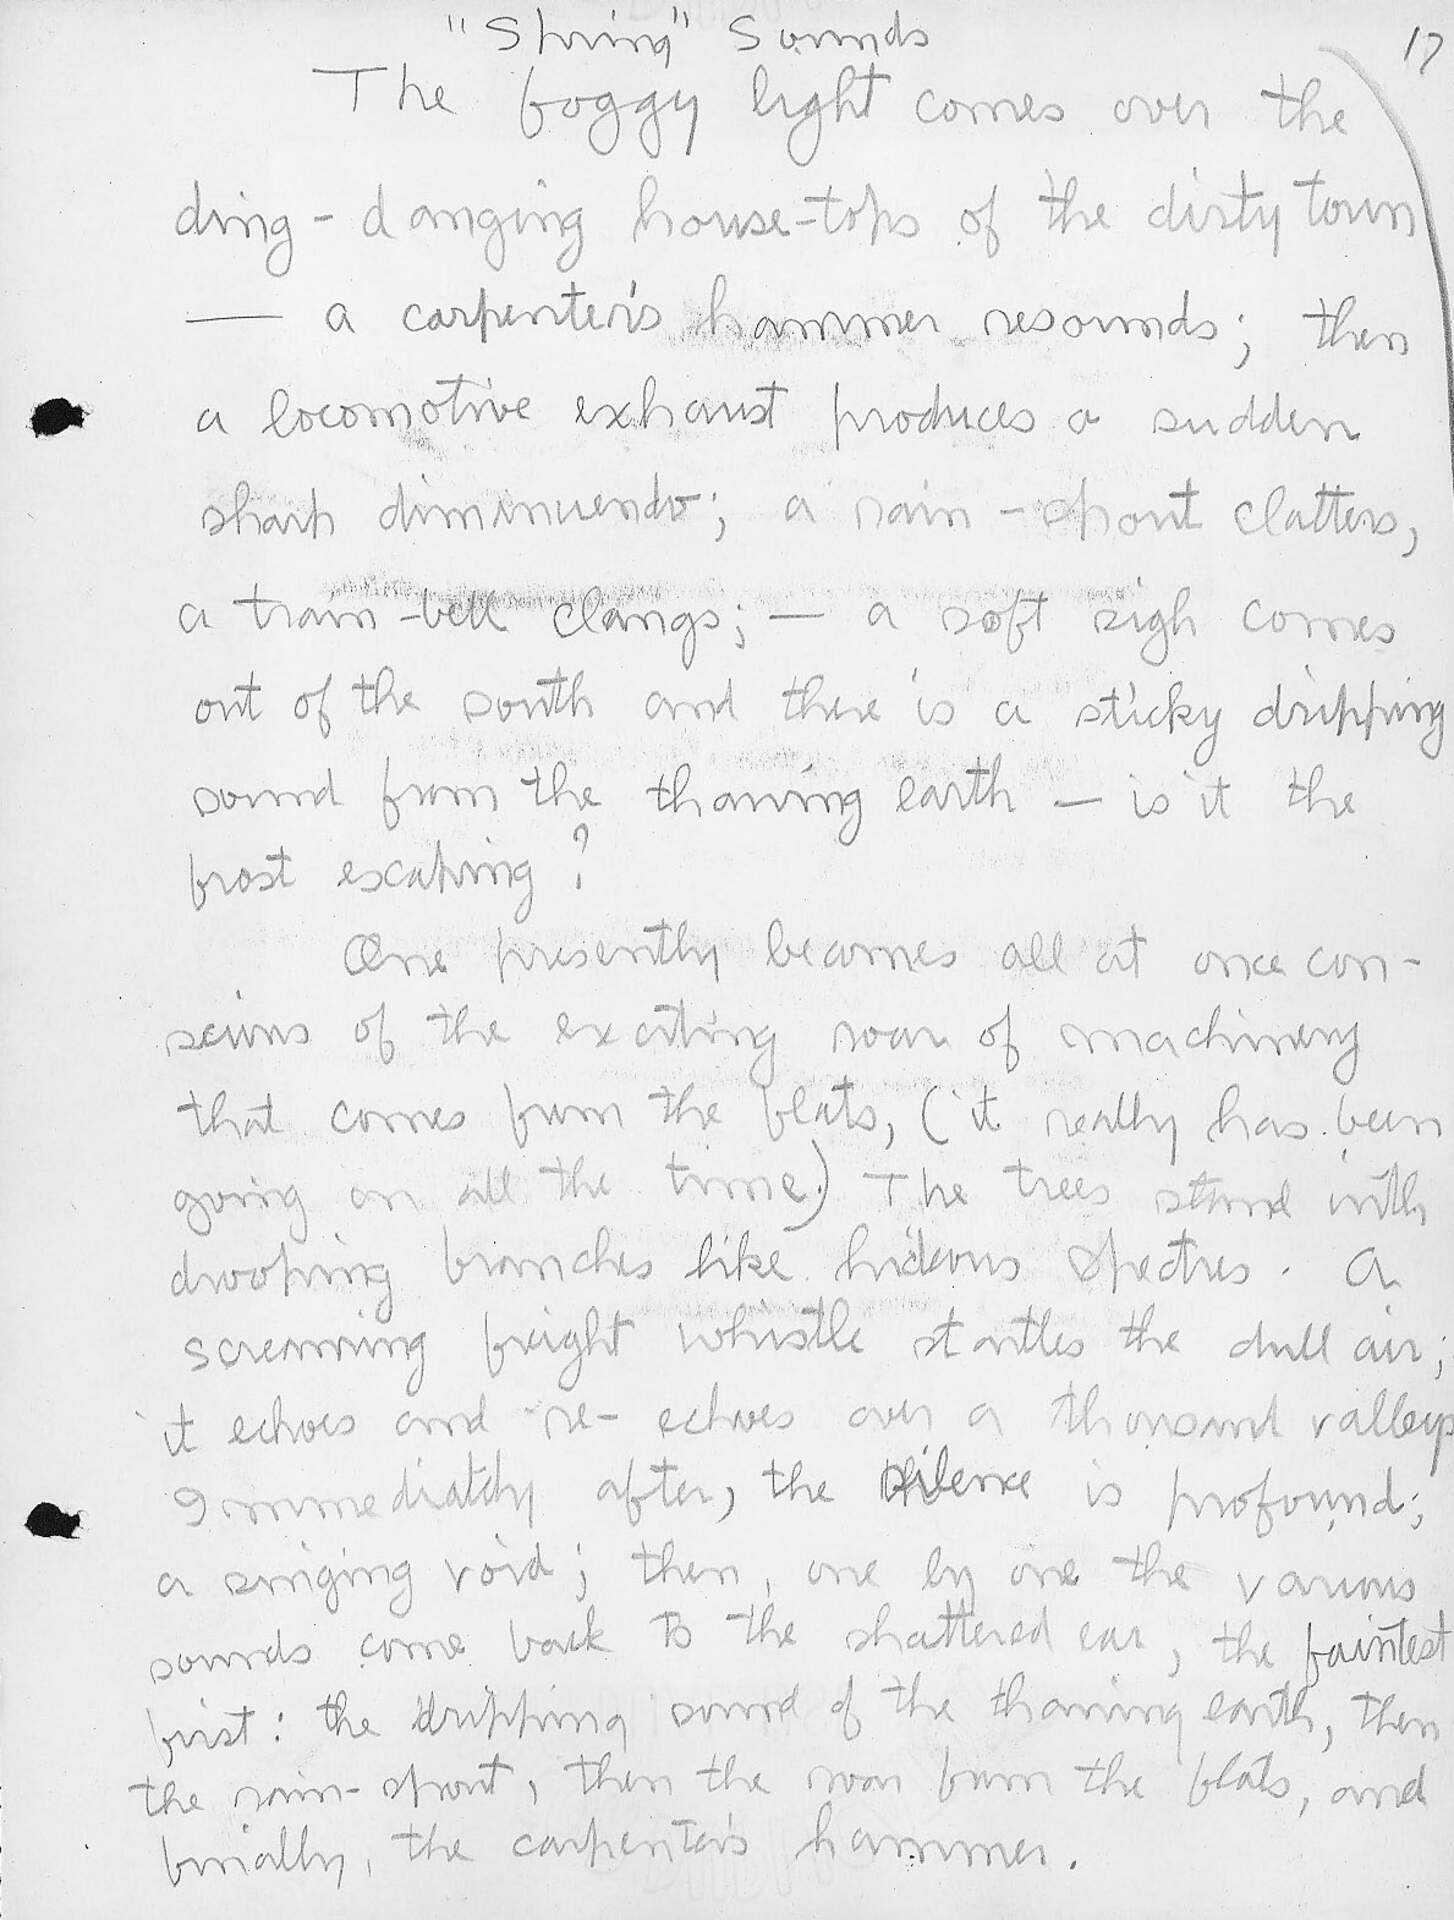 "Spring" Sounds
17
The foggy light comes over the
ding-danging house-tops of the dirty town
— a carpenter's hammer resounds; then
a locomotive exhaust produces a sudden
sharp diminuendo; a rain-spout clatters,
a train-bell clangs; — a soft sigh comes
out of the south and there is a sticky dripping
sound from the thawing earth — is it the
frost escaping?
One presently becomes all at once con-
scious of the exciting roar of machinery
that comes from the flats, (it really has been
going on all the time.) The trees stand with
drooping branches like hideous spectres. A
screaming freight whistle startles the dull air;
it echoes and re-echoes over a thousand valleys
Immediately after, the silence is profound;
a singing void; then, one by one the various
sounds come back to the shattered ear, the faintest
first: the dripping sound of the thawing earth, then
the rain-spout, then the roar from the flats, and
finally, the carpenter's hammer.